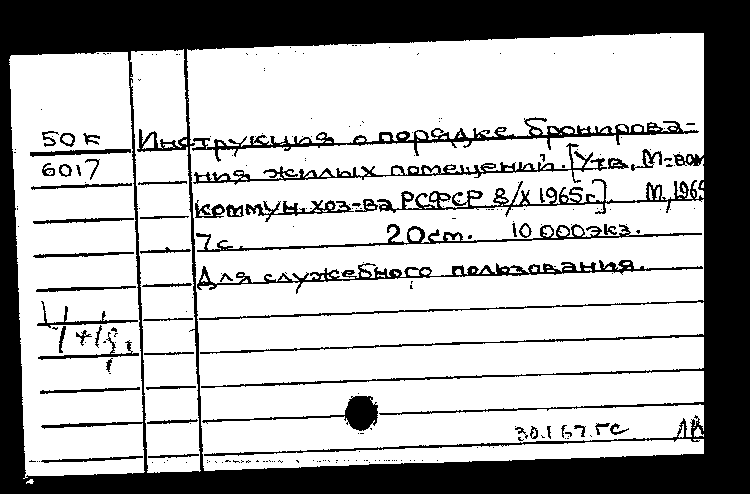 50 к Инструкция о порядке бронирова=
6017 ния жилых помещений. [Утв. М-вом
коммун. хоз-ва РСФСР 8/X 1965г.]. М, 1965
7 с. 20 см. 10 000 экз.
Для служебного пользования.
30.I 67. гс ЛВ